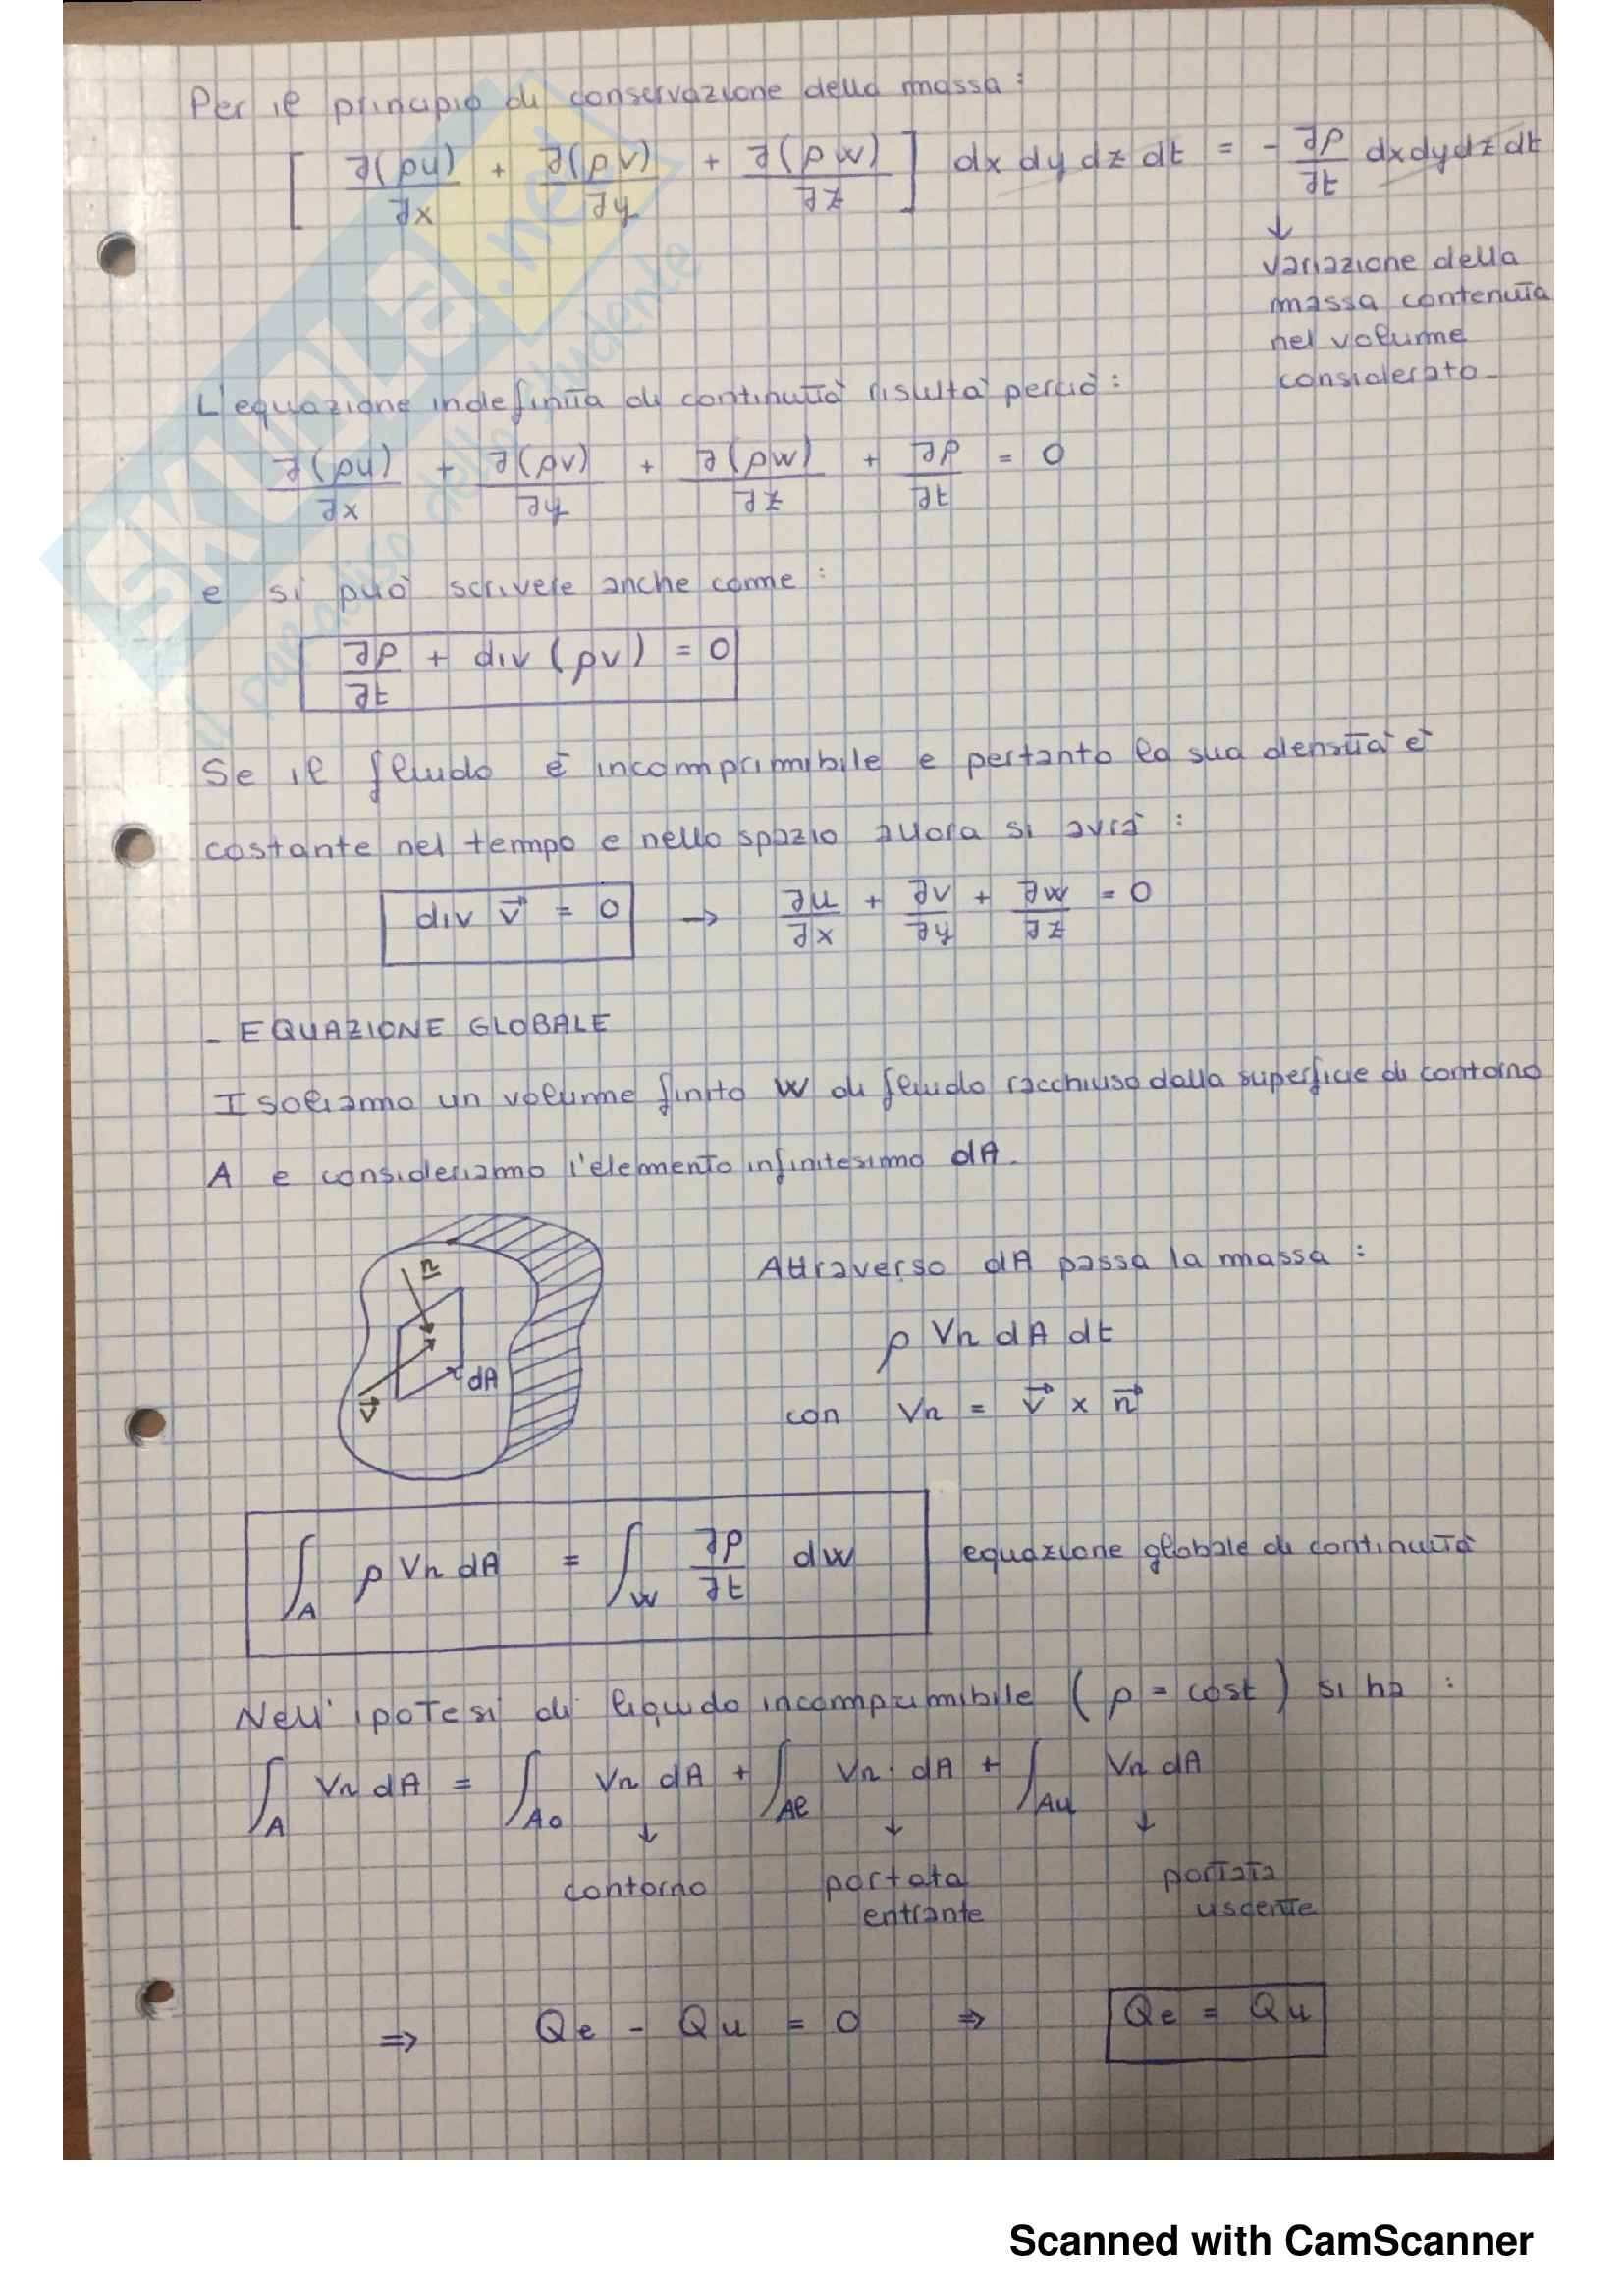 Per il principio di conservazione della massa :
[ ∂(ρu)/∂x + ∂(ρv)/∂y + ∂(ρw)/∂z ] dx dy dz dt = - ∂ρ/∂t dxdydzdt
↓
variazione della
massa contenuta
nel volume
considerato
L'equazione indefinita di continuità risulta perciò :
∂(ρu)/∂x + ∂(ρv)/∂y + ∂(ρw)/∂z + ∂ρ/∂t = 0
e si può scrivere anche come :
∂ρ/∂t + div (ρv) = 0
Se il fluido è incomprimibile e pertanto la sua densità è
costante nel tempo e nello spazio allora si avrà :
div v⃗ = 0 → ∂u/∂x + ∂v/∂y + ∂w/∂z = 0
- EQUAZIONE GLOBALE
Isoliamo un volume finito W di fluido racchiuso dalla superficie di contorno
A e consideriamo l'elemento infinitesimo dA.
n
dA
v⃗
Attraverso dA passa la massa :
ρ Vn dA dt
con Vn = v⃗ × n⃗
∫A ρ Vn dA = ∫W ∂ρ/∂t dW equazione globale di continuità
Nell'ipotesi di liquido incomprimibile (ρ = cost) si ha :
∫A Vn dA = ∫Ao Vn dA + ∫Ae Vn dA + ∫Au Vn dA
↓ ↓ ↓
contorno portata entrante portata uscente
⇒ Qe - Qu = 0 ⇒ Qe = Qu
SKUOLA.net
il paradiso dello studente
Scanned with CamScanner